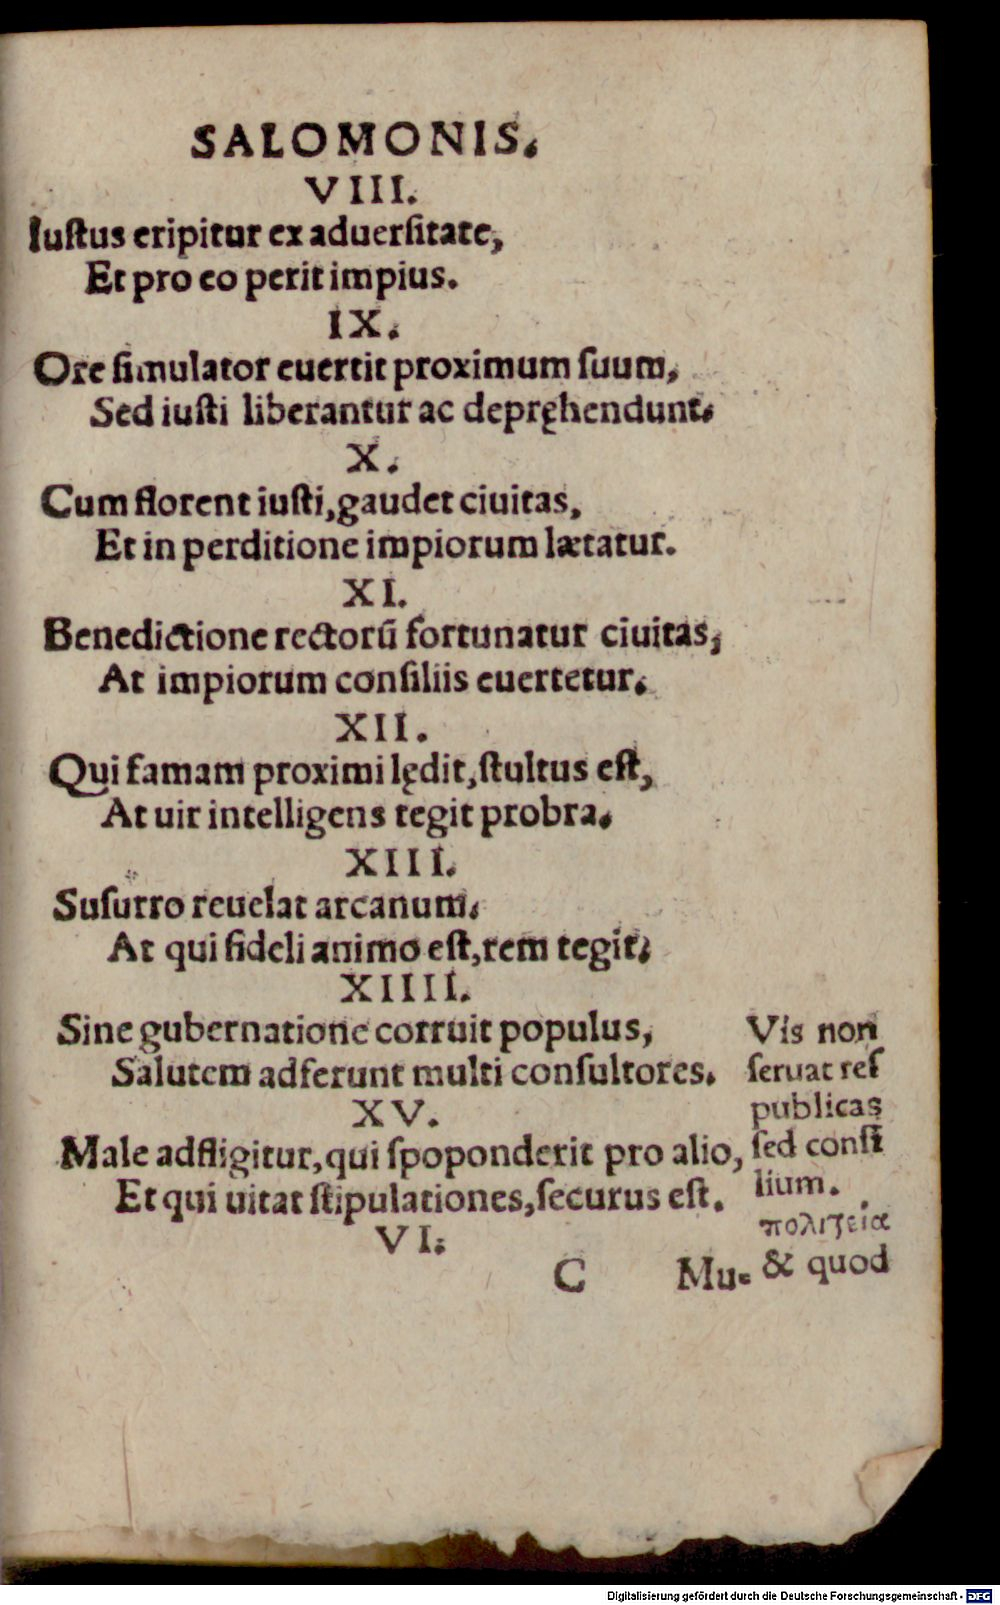 SALOMONIS.
VIII.
Iuſtus eripitur ex aduerſitate,
Et pro eo perit impius.
IX.
Ore ſimulator euertit proximum ſuum,
Sed iuſti liberantur ac depręhendunt.
X.
Cum florent iuſti, gaudet ciuitas,
Et in perditione impiorum lætatur.
XI.
Benedictione rectorũ fortunatur ciuitas,
At impiorum conſiliis euertetur.
XII.
Qui famam proximi lędit, ſtultus eſt,
At uir intelligens tegit probra.
XIII.
Suſurro reuelat arcanum.
At qui fideli animo eſt, rem tegit.
XIIII.
Sine gubernatione corruit populus,
Salutem adferunt multi conſultores.
XV.
Male adfligitur, qui ſpoponderit pro alio,
Et qui uitat ſtipulationes, ſecurus eſt.
VI.
C Mu-
Vis non
ſeruat reſ
publicas
ſed conſi
lium.
πολιτεία
& quod
Digitalisierung gefördert durch die Deutsche Forschungsgemeinschaft - DFG